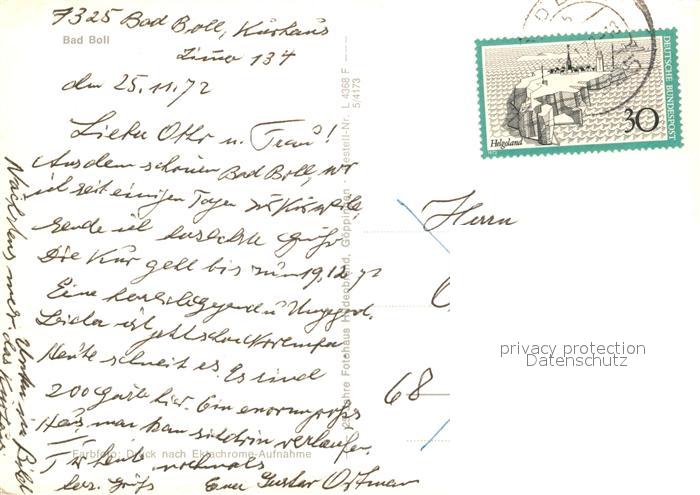 7325 Bad Boll, Kurhaus
Zimm 134
Bad Boll
den 25.11.72
Lieber Otto u. Frau!
Aus dem schönen Bad Boll, wo
ich seit einigen Tagen zur Kur weile,
sende ich herzlichste Grüße
Die Kur geht bis zum 19.12.72
Eine herrliche Gegend u. Umgegend.
Leider ist jetzt schon
Heute schneit es. Es sind
200 Gäste hier. Ein enorm großes
Haus, man kann sich drin verlaufen.
Für heute nochmals
herz. Grüße Euer Gustav
Unten im Bild
das Kurhaus
Farbfoto: Druck nach Ektachrome-Aufnahme
Jahre Fotohaus Göppingen Bestell-Nr. L 4368 F
5/4173
DEUTSCHE BUNDESPOST
Helgoland
30
Herrn
68
privacy protection
Datenschutz